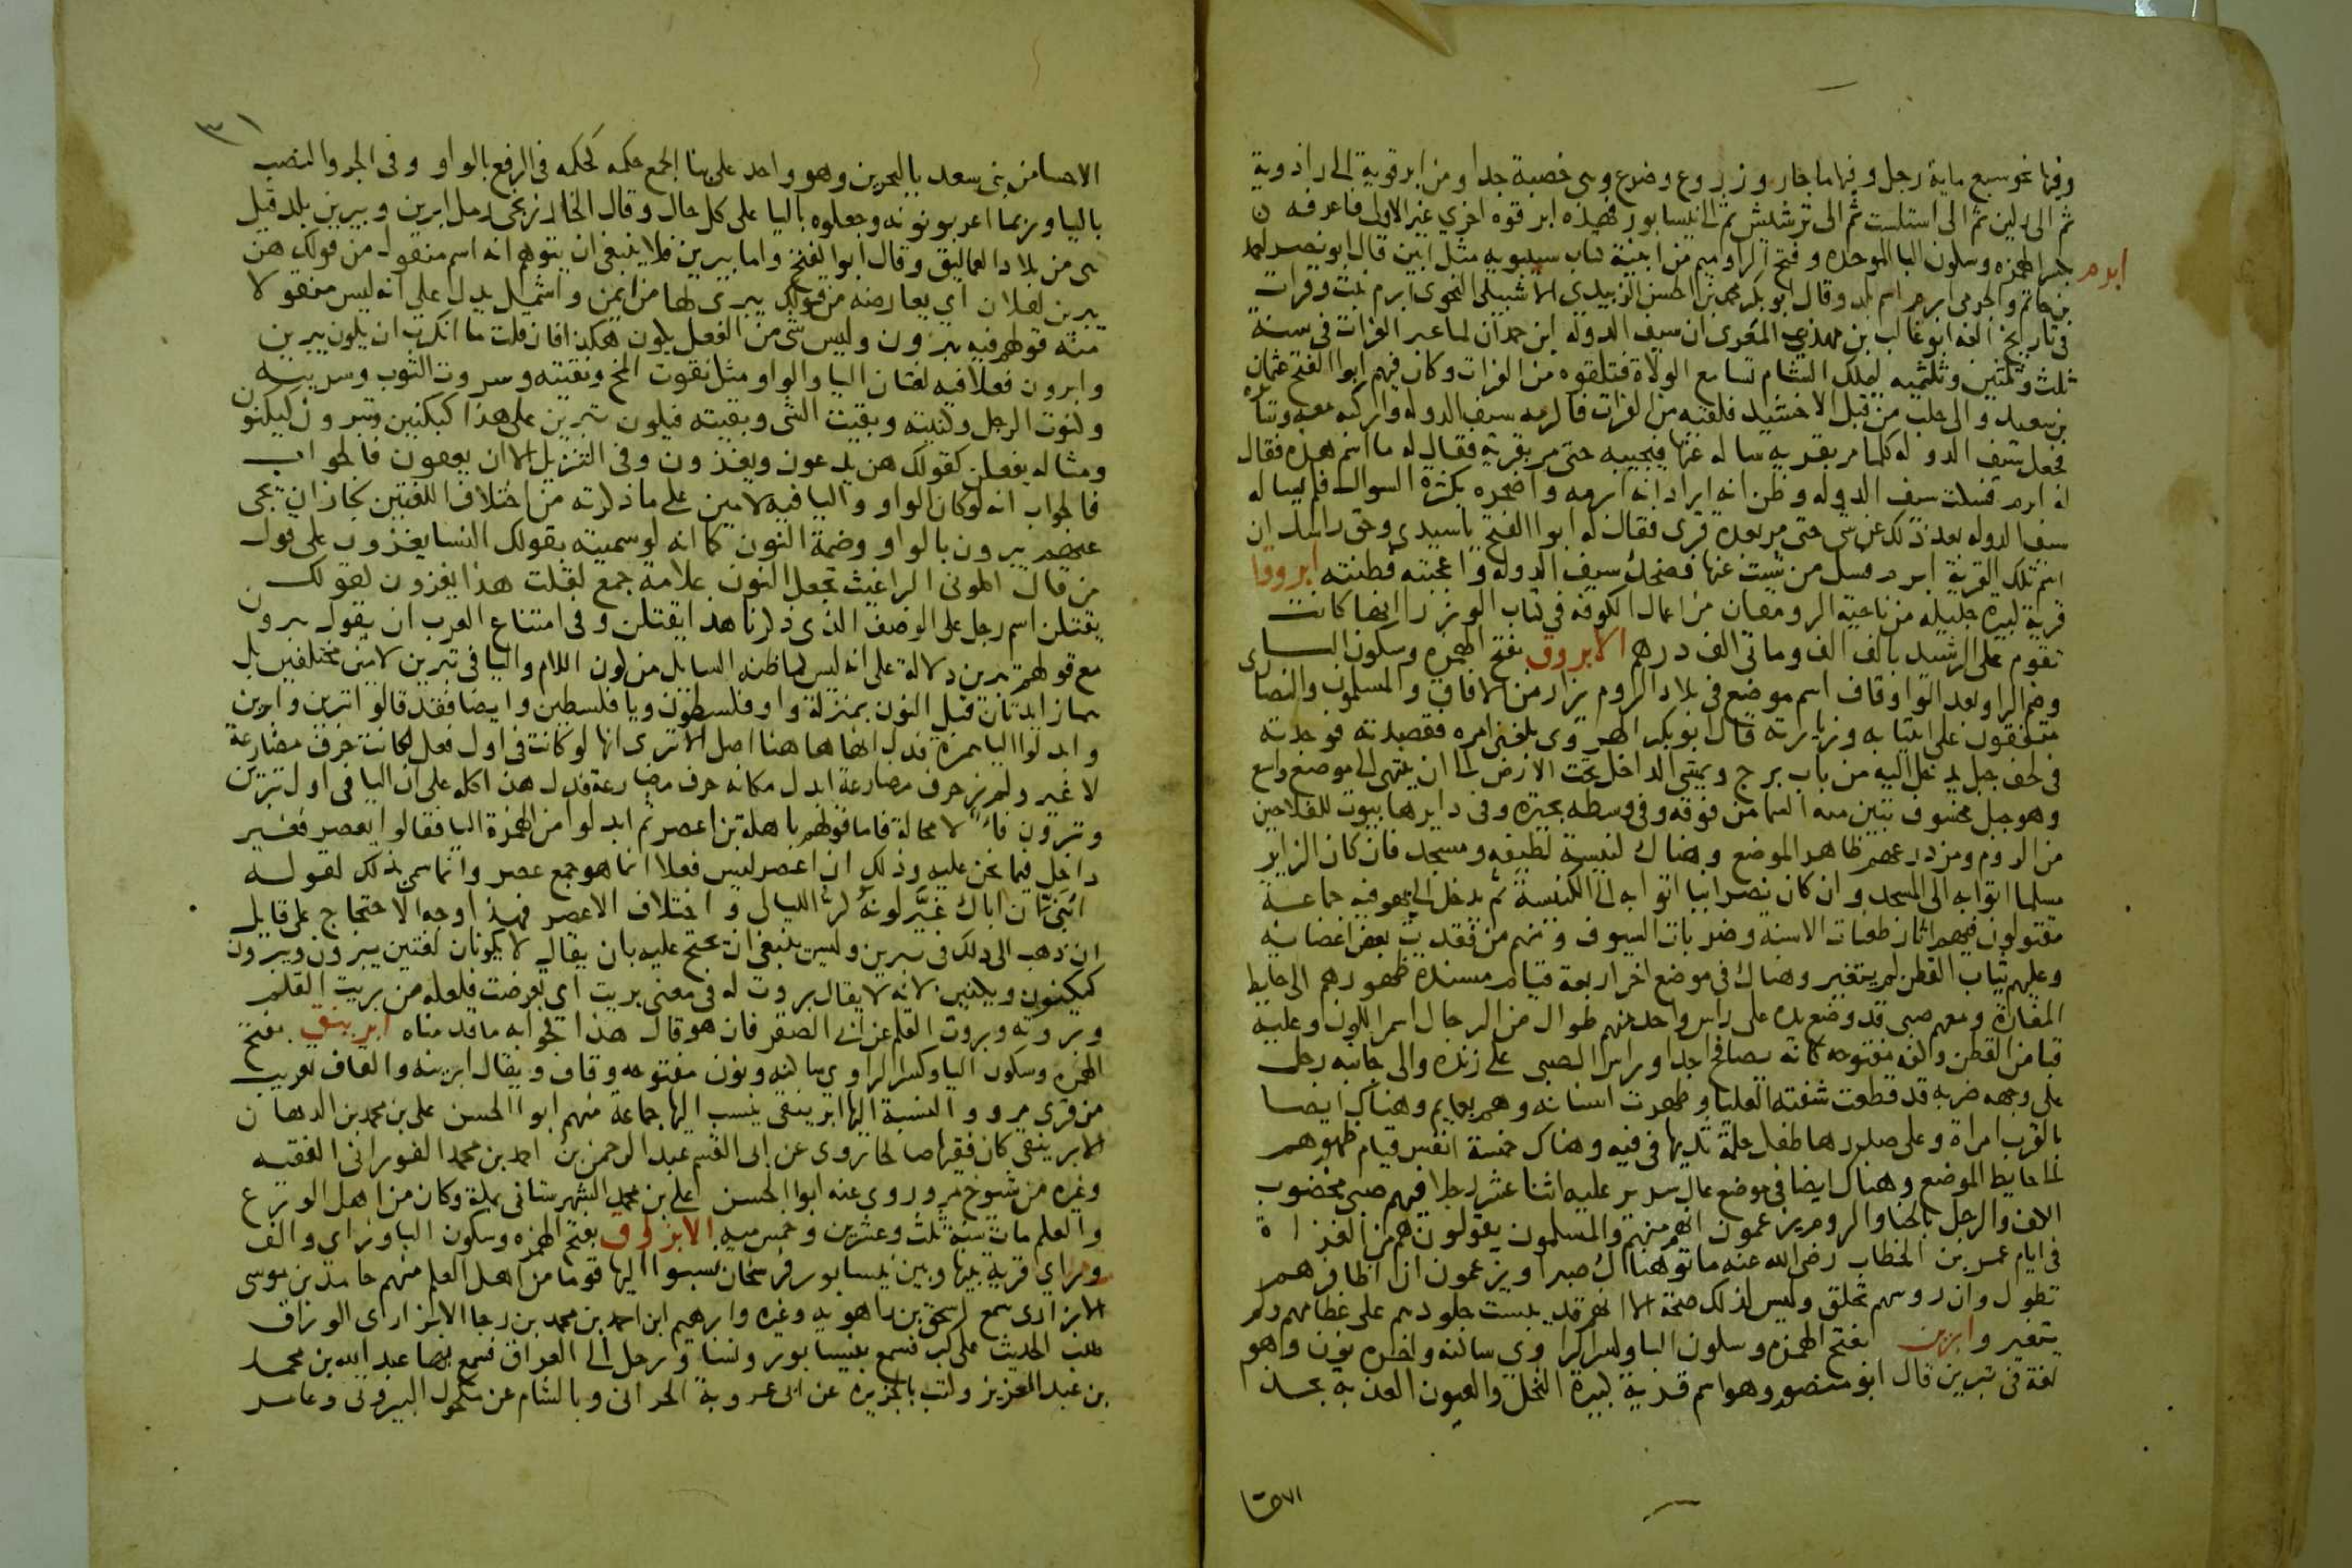 وفيها نحو سبع ماية رجل وفيها ماء جار وزروع وضرع وهى خصبة جدا ومن ابرقوية الى زاذوية
ثم الى ثم الى استلست ثم الى ترشيش ثم الى نيسابور فهذه ابرقوه اخرى غير الاولى فاعرفه
ابرم بكسر الهمزه وسكون البا الموحده وفتح الرا وميم من ابنية كتاب سيبويه مثل ابين قال ابو نصر احمد
بن حاتم والجرمى ابرم اسم بلد وقال ابو بكر محمد بن الحسن الزبيدي الاشبيلى النحوى ابرم نبت وقرات
فى تاريخ الفه ابو غالب بن مهذب المعرى ان سيف الدوله ابن حمدان لما عبر الفرات فى سنة
ثلث وثلثين وثلثميه ليملك الشام تسامع الولاة فتلقوه من الفرات وكان فيهم ابو الفتح عثمان
بن سعيد والى حلب من قبل الاخشيد فلقيه من الفرات فاكرمه سيف الدوله واركبه معه وسايره
فجعل سيف الدوله كلما مر بقريه ساله عنها فيجيبه حتى مر بقرية فقال له ما اسم هذه فقال
له ابرم فسكت سيف الدوله وظن انه اراد انه ابرمه واضجره بكثرة السوال فلم يساله
سيف الدوله بعد ذلك عن شى حتى مر بعدة قرى فقال له ابو الفتح يا سيدى وحق راسك ان
اسم تلك القرية ابرم فسل من شيت عنها فضحك سيف الدوله واعجبته فطنته ابروقا
قرية كبيرة جليله من ناحية الرومقان من اعمال الكوفه فى كتاب الوزرا انها كانت
تقوم على الرشيد بالف الف وماتى الف درهم الابروق بفتح الهمزه وسكون البا
وضم الرا وبعد الواو قاف اسم موضع فى بلاد الروم يزار من الافاق والمسلمون والنصارى
متفقون على انتيابه وزيارته قال ابو بكر الهروى بلغنى امره فقصدته فوجدته
فى لحف جبل يدخل اليه من باب برج ويمشى الداخل تحت الارض الى ان ينتهى الى موضع واسع
وهو جبل مخسوف تبين منه السما من فوقه وفى وسطه بحيرة وفى دايرها بيوت للفلاحين
من الروم ومزدرعهم ظاهر الموضع وهناك كنيسة لطيفه ومسجد فان كان الزاير
مسلما اتوا به الى المسجد وان كان نصرانيا اتوا به الى الكنيسة ثم يدخل الى بهو فيه جماعة
مقتولون فيهم اثار طعنات الاسنه وضربات السيوف ومنهم من فقدت بعض اعضايه
وعليهم ثياب القطن لم يتغير وهناك فى موضع اخر اربعة قيام مسندة ظهورهم الى حايط
المغارة ومعهم صبى قد وضع يده على راس واحد منهم طوال من الرجال اسمر اللون وعليه
قبا من القطن وكفه مفتوحه كانه يصافح احدا وراس الصبى على زنده والى جانبه رجل
على وجهه ضربه قد قطعت شفته العليا وظهرت اسنانه وهم بعمايم وهناك ايضا
بالقرب امراة وعلى صدرها طفل حلمة ثديها فى فيه وهناك خمسة انفس قيام ظهورهم
الى حايط الموضع وهناك ايضا فى موضع عال سرير عليه اثنا عشر رجلا فيهم صبى مخضوب
اليد والرجل بالحنا والروم يزعمون انهم منهم والمسلمون يقولون هم من الغزاة
فى ايام عمر بن الخطاب رضى الله عنه ماتوا هناك صبرا ويزعمون ان اظافرهم
تطول وان روسهم تحلق وليس لذلك صحة الا انهم قد يبست جلودهم على عظامهم ولم
يتغيروا ابرين بفتح الهمزه وسكون البا وكسر الرا وى ساكنه واخره نون وهو
لغة فى يبرين قال ابو منصور وهو اسم قرية كبيرة النخل والعيون العذبه بحذا
الاحسا
٣١
الاحسا من بنى سعد بالبحرين وهو واحد على بنا الجمع حكمه كحكمه فى الرفع بالواو وفى الجر والنصب
باليا وربما اعربوا نونه وجعلوه باليا على كل حال وقال الخارزنجى رمل ابرين ويبرين بلد قيل
هى من بلاد العماليق وقال ابو الفتح واما يبرين فلا ينبغى ان يتوهم انه اسم منقول من قولك هن
يبرين لفلان اى يعارضنه من قولك يبرى لها من ايمن واشمل يدل على انه ليس منقولا
منه قولهم فيه يبرون وليس شى من الفعل يكون هكذا فان قلت ما انكرت ان يكون يبرين
وابرون فعلا فيه لغتان اليا والواو مثل نقوت المخ ونقيته وسروت الثوب وسريته
وكنوت الرجل وكنيته وبقيت الشى وبقيته فيكون يبرين على هذا كيكنين ويبرون كيكنون
ومثاله يفعلن كقولك هن يدعون ويغزون وفى التنزيل الا ان يعفون فالجواب
فالجواب انه لو كان الواو واليا فيه لامين على ما ذكرته من اختلاف اللغتين لجاز ان يجى
عنهم يبرون بالواو وضمة النون كما انه لو سميته بقولك النسا يغزون على قول
من قال اكلونى البراغيث تجعل النون علامة جمع لقلت هذا يغزون كقولك
يقتلن اسم رجل على الوصف الذى ذكرنا هذا يقتلن وفى امتناع العرب ان يقول يبرون
مع قولهم يبرين دلالة على انه ليس كما ظنه السايل من كون اللام واليا فى يبرين لامين مختلفين بل
هما زايدتان قبل النون بمنزلة واو فلسطون ويا فلسطين وايضا فقد قالوا ابرين وابرين
وابدلوا اليا همزة فدل انها هاهنا اصل الا ترى انها لو كانت فى اول فعل لكانت حرف مضارعة
لا غير ولم نر حرف مضارعة ابدل مكانه حرف مضارعة فدل هذا كله على ان اليا فى اول يبرين
ويبرون فا لا محالة فاما قولهم باهلة بن اعصر ثم ابدلوا من الهمزة اليا فقالوا يعصر فغير
داخل فيما نحن عليه وذلك ان اعصر ليس فعلا انما هو جمع عصر وانما سمى بذلك لقوله
ابنى ان اباك غير لونه كر الليالى واختلاف الاعصر فهذا وجه الاحتجاج على قايل
ان ذهب الى ذلك فى يبرين وليس ينبغى ان يحتج عليه بان يقال لا يكونان لغتين يبرون ويبرين
كيكنون ويكنين لانه لا يقال بروت له فى معنى بريت اى تعرضت فلعله من بريت القلم
وبروته وبروت القلم عن ابى الصقر فان هو قال هذا فجوابه ما قدمناه ابرينق بفتح
الهمزه وسكون البا وكسر الرا وى ساكنه ونون مفتوحه وقاف ويقال ابرينه والقاف تعريب
من قرى مرو والنسبة اليها ابرينقى ينسب اليها جماعة منهم ابو الحسن على بن محمد بن الدهان
الابرينقى كان فقيها صالحا يروى عن ابى القسم عبد الرحمن بن احمد بن محمد الفورانى الفقيه
وغيره من شيوخ مرو وروى عنه ابو الحسن على بن محمد الشهرستانى بمكة وكان من اهل الورع
والعلم مات سنة ثلث وعشرين وخمس ميه الابزوق بفتح الهمزه وسكون البا وزاى والف
وراى قرية بينها وبين نيسابور فرسخان نسبوا اليها قوما من اهل العلم منهم حامد بن موسى
الابزارى سمع اسحق بن راهويه وغيره وابرهيم ابن احمد بن محمد بن رجا الابزارى الوراق
طلب الحديث على كبر فسمع بنيسابور ونسا ورحل الى العراق فسمع بها عبد الله بن محمد
بن عبد العزيز وكتب بالجزيره عن ابى عروبة الحرانى وبالشام عن مكحول البيروتى وعامر